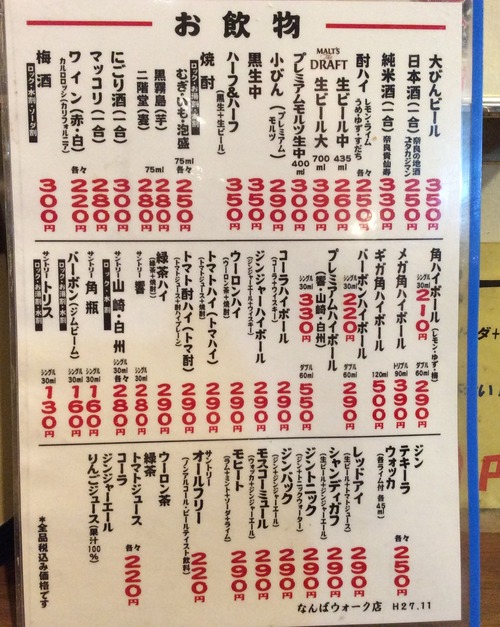 お飲物
大びんビール 350円
日本酒(一合) 奈良の地酒 ユタカジマン 250円
純米酒(一合) 奈良貴仙寿 330円
酎ハイ レモン・ライム うめ・ゆず・すだち 各々 250円
MALT'S DRAFT
生ビール中 435ml 260円
生ビール大 700ml 390円
プレミアムモルツ生中 400ml 300円
小びん(プレミアムモルツ) 290円
黒生中 350円
ハーフ&ハーフ(黒生+生ビール) 350円
焼酎 ロック・お湯割・水割
むぎ・いも・泡盛 75ml 各々 250円
黒霧島(芋) 280円
二階堂(麦) 75ml 280円
にごり酒(一合) 300円
マッコリ(一合) 280円
ワイン(赤・白) カルロロッシ(カリフォルニア) 各々 220円
梅酒 ロック・水割・ソーダ割 300円
角ハイボール(レモン・ゆず・梅) シングル 30ml 210円 ダブル 60ml 290円
メガ角ハイボール トリプル 90ml 390円
ギガ角ハイボール 120ml 500円
バーボンハイボール シングル 30ml 220円 ダブル 60ml 290円
プレミアムハイボール(響・山崎・白州) シングル 30ml 330円 ダブル 60ml 550円
コーラハイボール(コーラ+ウイスキー) 290円
ジンジャーハイボール(ジンジャーエール+ウイスキー) 290円
ウーロンハイ(ウーロン茶+焼酎) 290円
トマトハイ(トマハイ)(トマトジュース+焼酎) 290円
トマト酎ハイ(トマ酎)(トマトジュース+酎ハイプレーン) 290円
緑茶ハイ(緑茶+焼酎) 290円
サントリー 響 シングル 30ml 280円
サントリー 山崎・白州 シングル 30ml 各々 280円
ロック・水割
サントリー 角瓶 シングル 30ml 160円
バーボン(ジムビーム) ロック・お湯割・水割 シングル 30ml 160円
サントリー トリス ロック・お湯割・水割 シングル 30ml 130円
ジン
テキーラ
ウォッカ(各ライム付 各45ml) 各々 250円
レッドアイ(生ビール+トマトジュース) 290円
シャンディガフ(生ビール+ジンジャーエール) 290円
ジントニック(ジン+トニックウォーター) 290円
ジンバック(ジン+ジンジャーエール) 290円
モスコーミュール(ウォッカ+ジンジャーエール) 290円
モヒート(ラム+ミント+ソーダ+ライム) 290円
サントリー オールフリー(ノンアルコール・ビールテイスト飲料) 220円
ウーロン茶
緑茶
トマトジュース
コーラ
ジンジャーエール
りんごジュース(果汁100%) 各々 220円
*全品税込み価格です
なんばウォーク店 H27.11